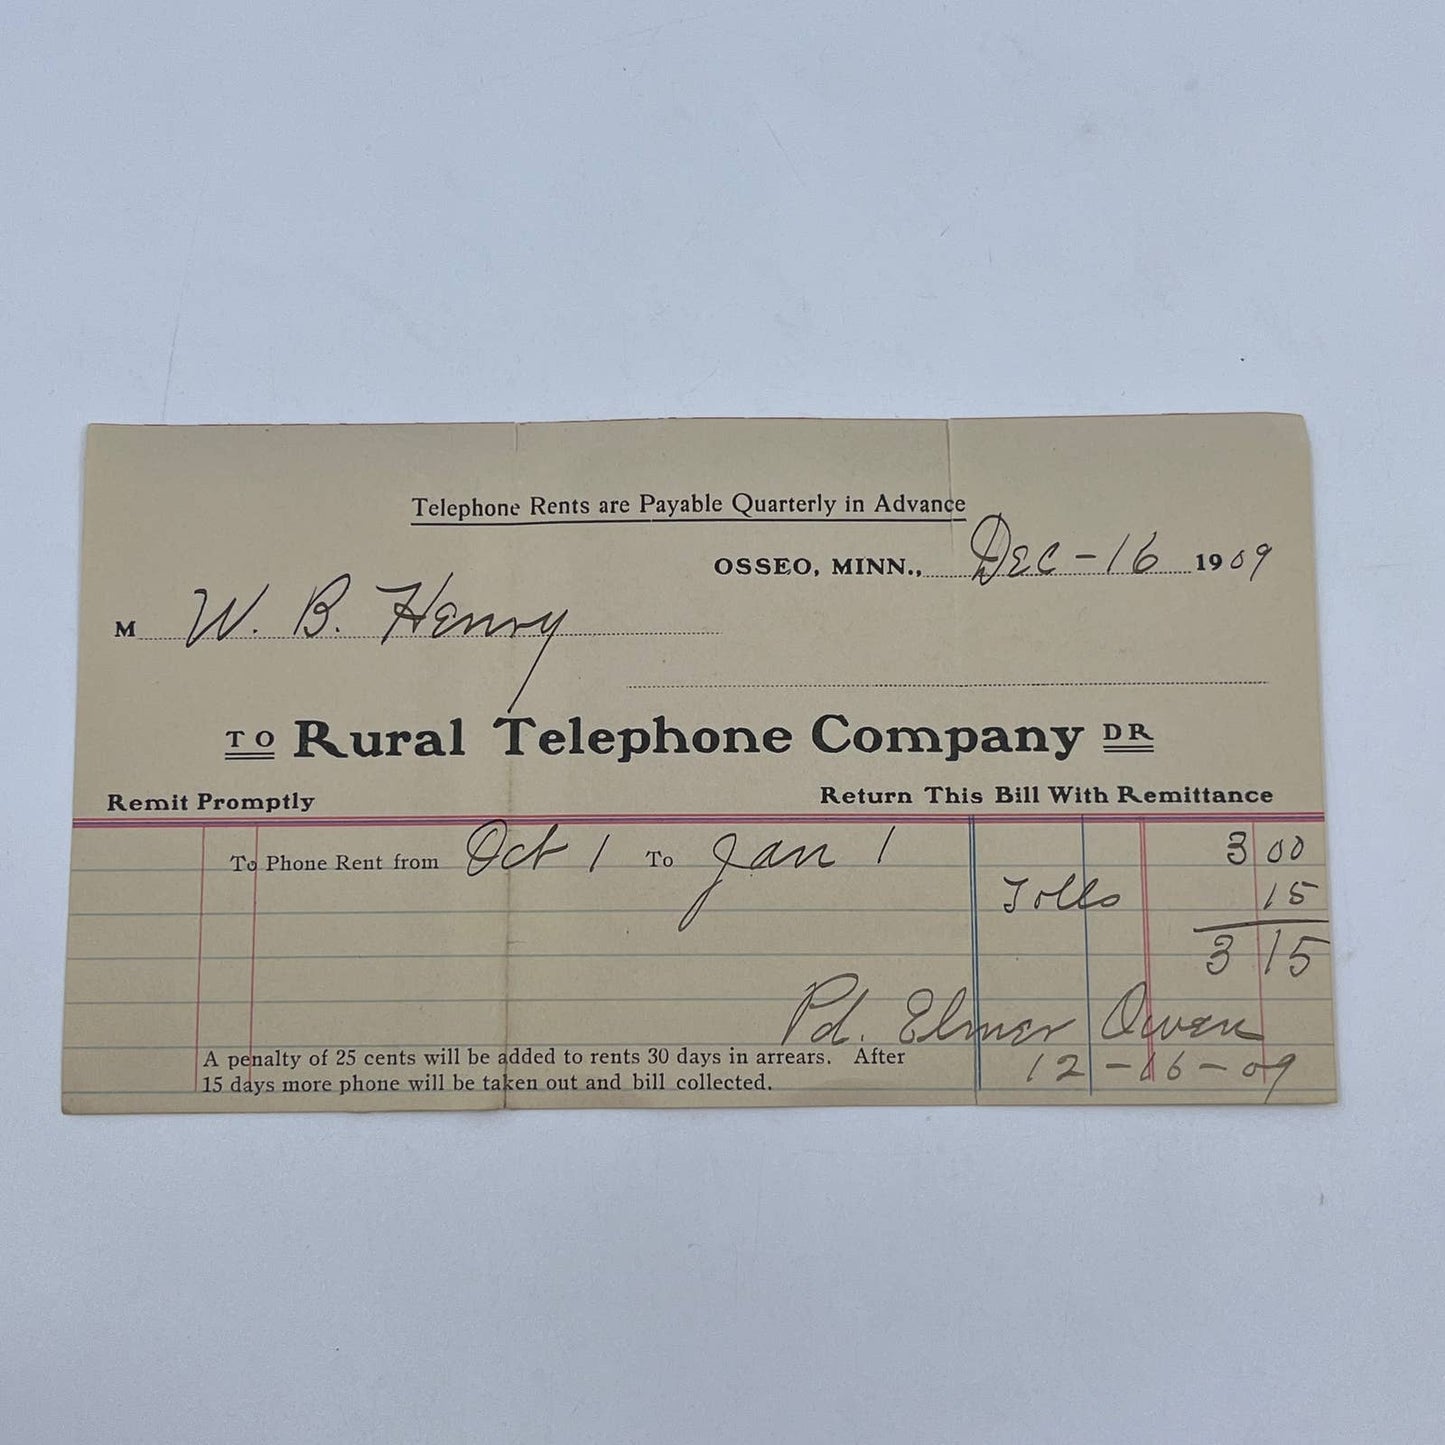 Telephone Rents are Payable Quarterly in Advance
OSSEO, MINN., Dec-16 1909
M W. B. Henry
TO Rural Telephone Company DR
Remit Promptly Return This Bill With Remittance
To Phone Rent from Oct 1 To Jan 1 3 00
Tolls 15
3 15
Pd. Elmer Owen
A penalty of 25 cents will be added to rents 30 days in arrears. After
12-16-09
15 days more phone will be taken out and bill collected.